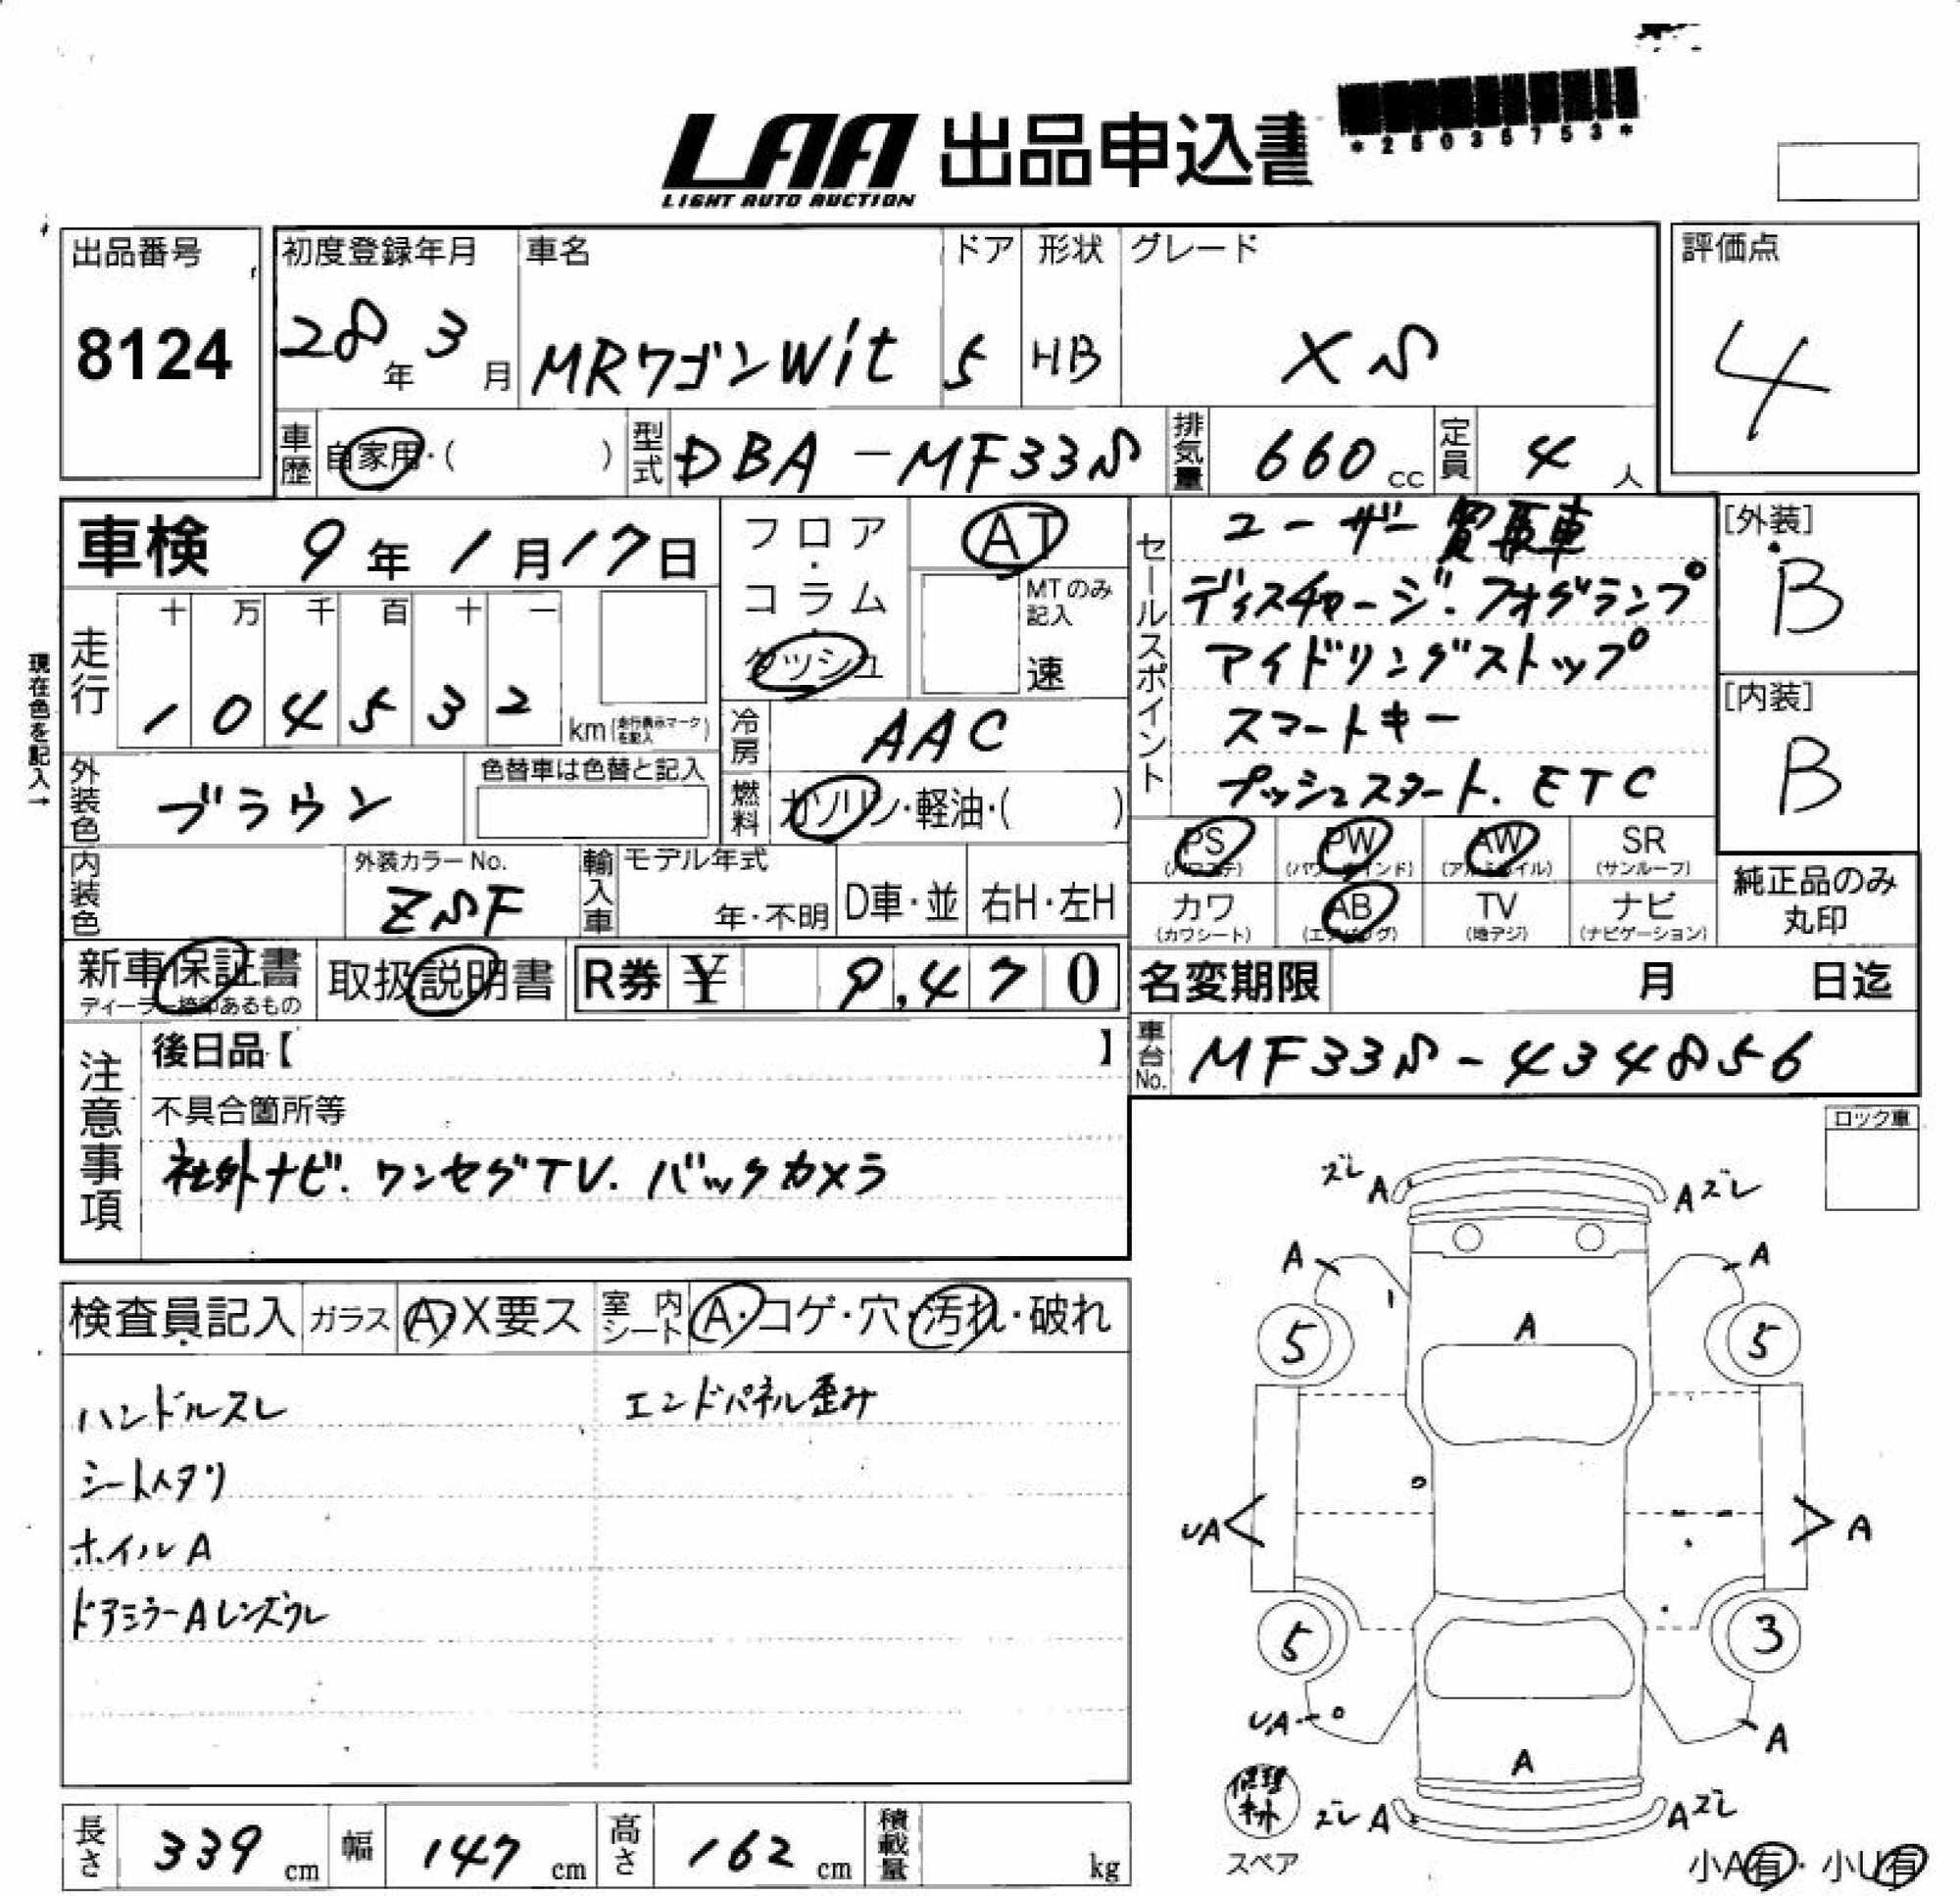 LAA 出品申込書
LIGHT AUTO AUCTION
*25035753*
出品番号
8124
初度登録年月
28年3月
車名
MRワゴンWit
ドア
5
形状
HB
グレード
XS
評価点
4
車歴 自家用・( )
型式 DBA-MF33S
排気量 660cc
定員 4人
車検 9年1月17日
現在色を記入→
走行 十 万 千 百 十 一
1 0 4 5 3 2 km (走行表示マークを記入)
フロア・コラム・ダッシュ
AT
MTのみ記入
速
冷房 AAC
燃料 ガソリン・軽油・( )
外装色 ブラウン
色替車は色替と記入
内装色
外装カラーNo.
ZSF
輸入車 モデル年式
年・不明
D車・並
右H・左H
セールスポイント
ユーザー買取車
ディスチャージ.フォグランプ
アイドリングストップ
スマートキー
プッシュスタート.ETC
[外装]
B
[内装]
B
PS (パワステ)
PW (パワーウインド)
AW (アルミホイル)
SR (サンルーフ)
カワ (カワシート)
AB (エアバッグ)
TV (地デジ)
ナビ (ナビゲーション)
純正品のみ丸印
新車保証書
ディーラー捺印あるもの
取扱説明書
R券 ¥ 9,470
名変期限 月 日迄
車台No. MF33S-434856
注意事項
後日品【 】
不具合箇所等
社外ナビ.ワンセグTV.バックカメラ
ロック車
検査員記入
ガラス A・X要ス
室内シート A・コゲ・穴・汚れ・破れ
ハンドルスレ
エンドパネル歪み
シートヘタリ
ホイルA
ドアミラーAレンズウレ
ズレ A
A ズレ
A
A
5
A
5
UA
A
5
3
UA
A
A
修理キット
スペア
ズレ A
A ズレ
小A有・小U有
長さ 339cm
幅 147cm
高さ 162cm
積載量 kg